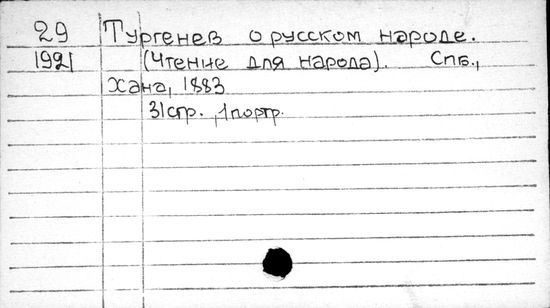 29 Тургенев о русском народе.
1921 (Чтение для народа). Спб.,
Хана, 1883
31стр., 1портр.